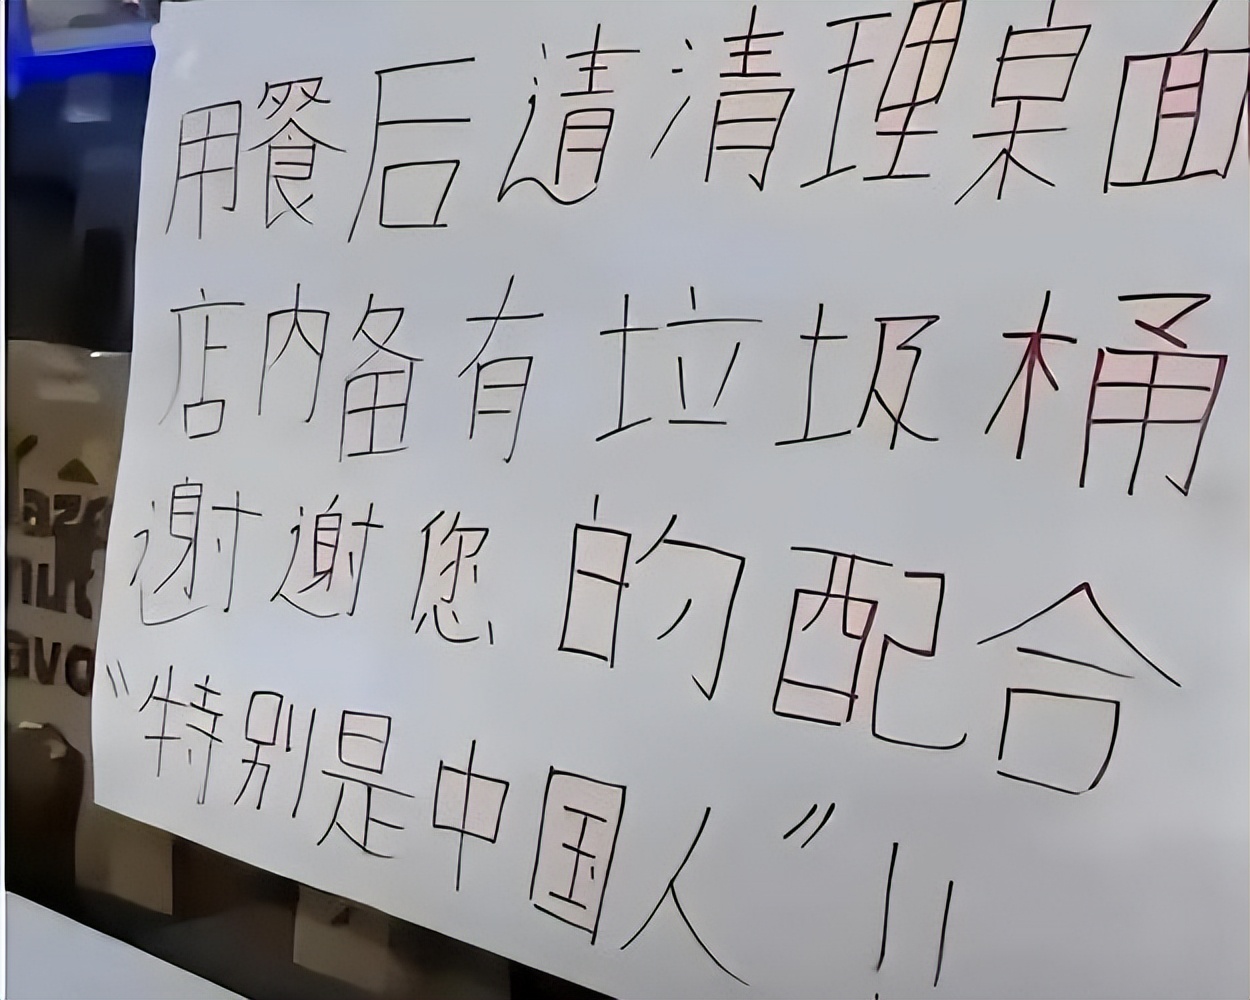 用餐后请清理桌面
店内备有垃圾桶
谢谢您的配合
“特别是中国人”!!